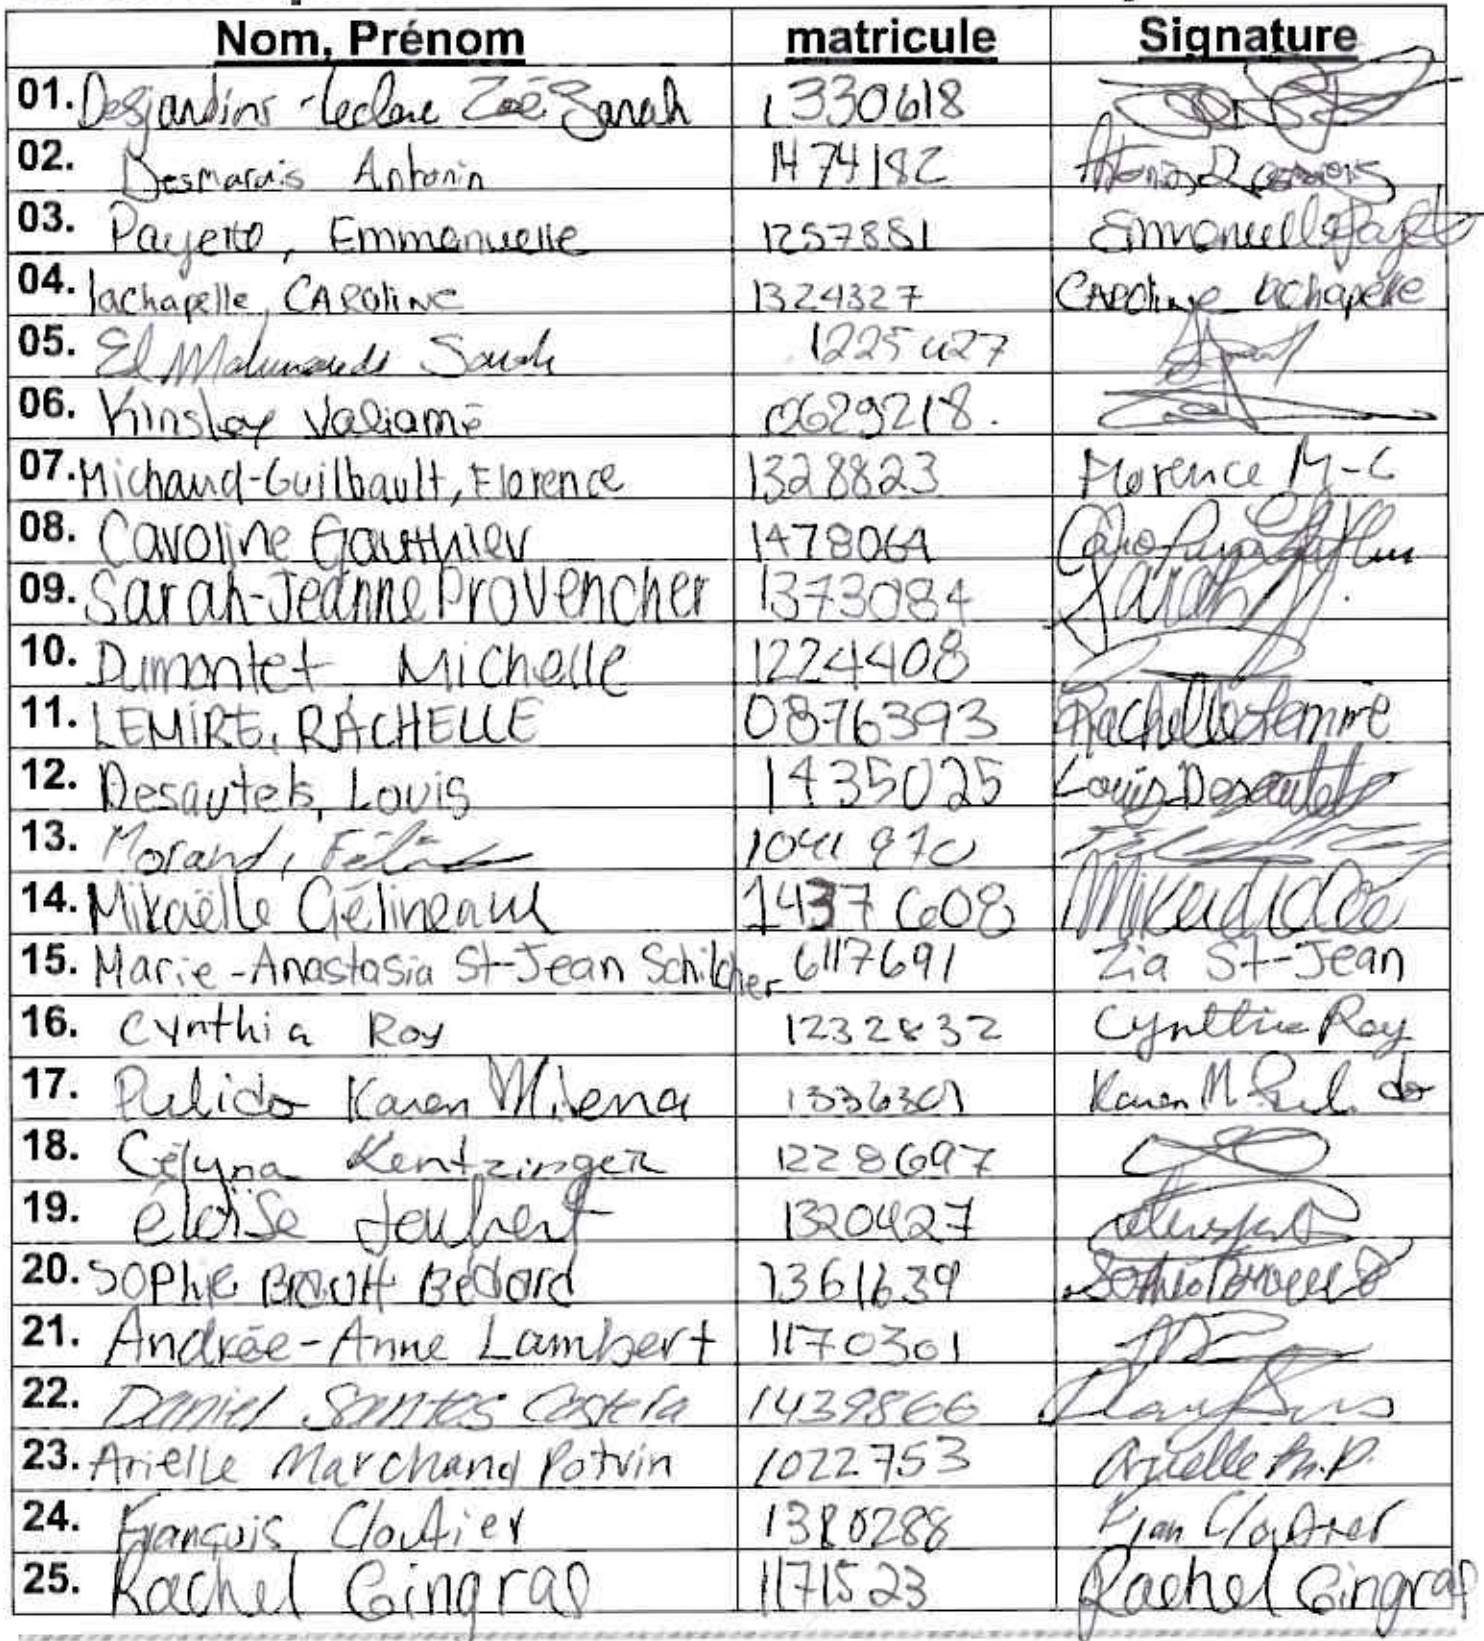 Nom, Prénom matricule Signature
01. Desjardins-Leclerc Zoé Sarah 1330618
02. Desmarais Antonin 1474182 Antonin Desmarais
03. Payette, Emmanuelle 1257881 Emmanuelle Payette
04. lachapelle, CAROliNE 1324327 CAROline lachapelle
05. El Mahmoudi Sarah 1225427
06. Kinsley Valiamé 0629218.
07. Michaud-Guilbault, Florence 1328823 Florence M-G
08. Caroline Gauthier 1478064
09. Sarah-Jeanne Provencher 1373084 Sarah
10. Dumontet Michelle 1224408
11. LEMIRE, RACHELLE 0876393 Rachelle Lemire
12. Desautels, Louis 1435025 Louis Desautels
13. Morand, 1041970
14. Mikaëlle Gélineau 1437608
15. Marie-Anastasia St-Jean Schilcher 6117691 Zia St-Jean
16. Cynthia Roy 1232832 Cynthia Roy
17. Pulido Karen Milena 1336301 Karen M Pulido
18. Célyna Kentzinger 1228697
19. éloïse Joubert 1320427
20. Sophie Brault Bédard 1361639
21. Andrée-Anne Lambert 1170301
22. Daniel Santos 1439866
23. Arielle Marchand Potvin 1022753 Arielle M.P.
24. François Cloutier 1380288 Fran Cloutier
25. Rachel Gingras 1171523 Rachel Gingras